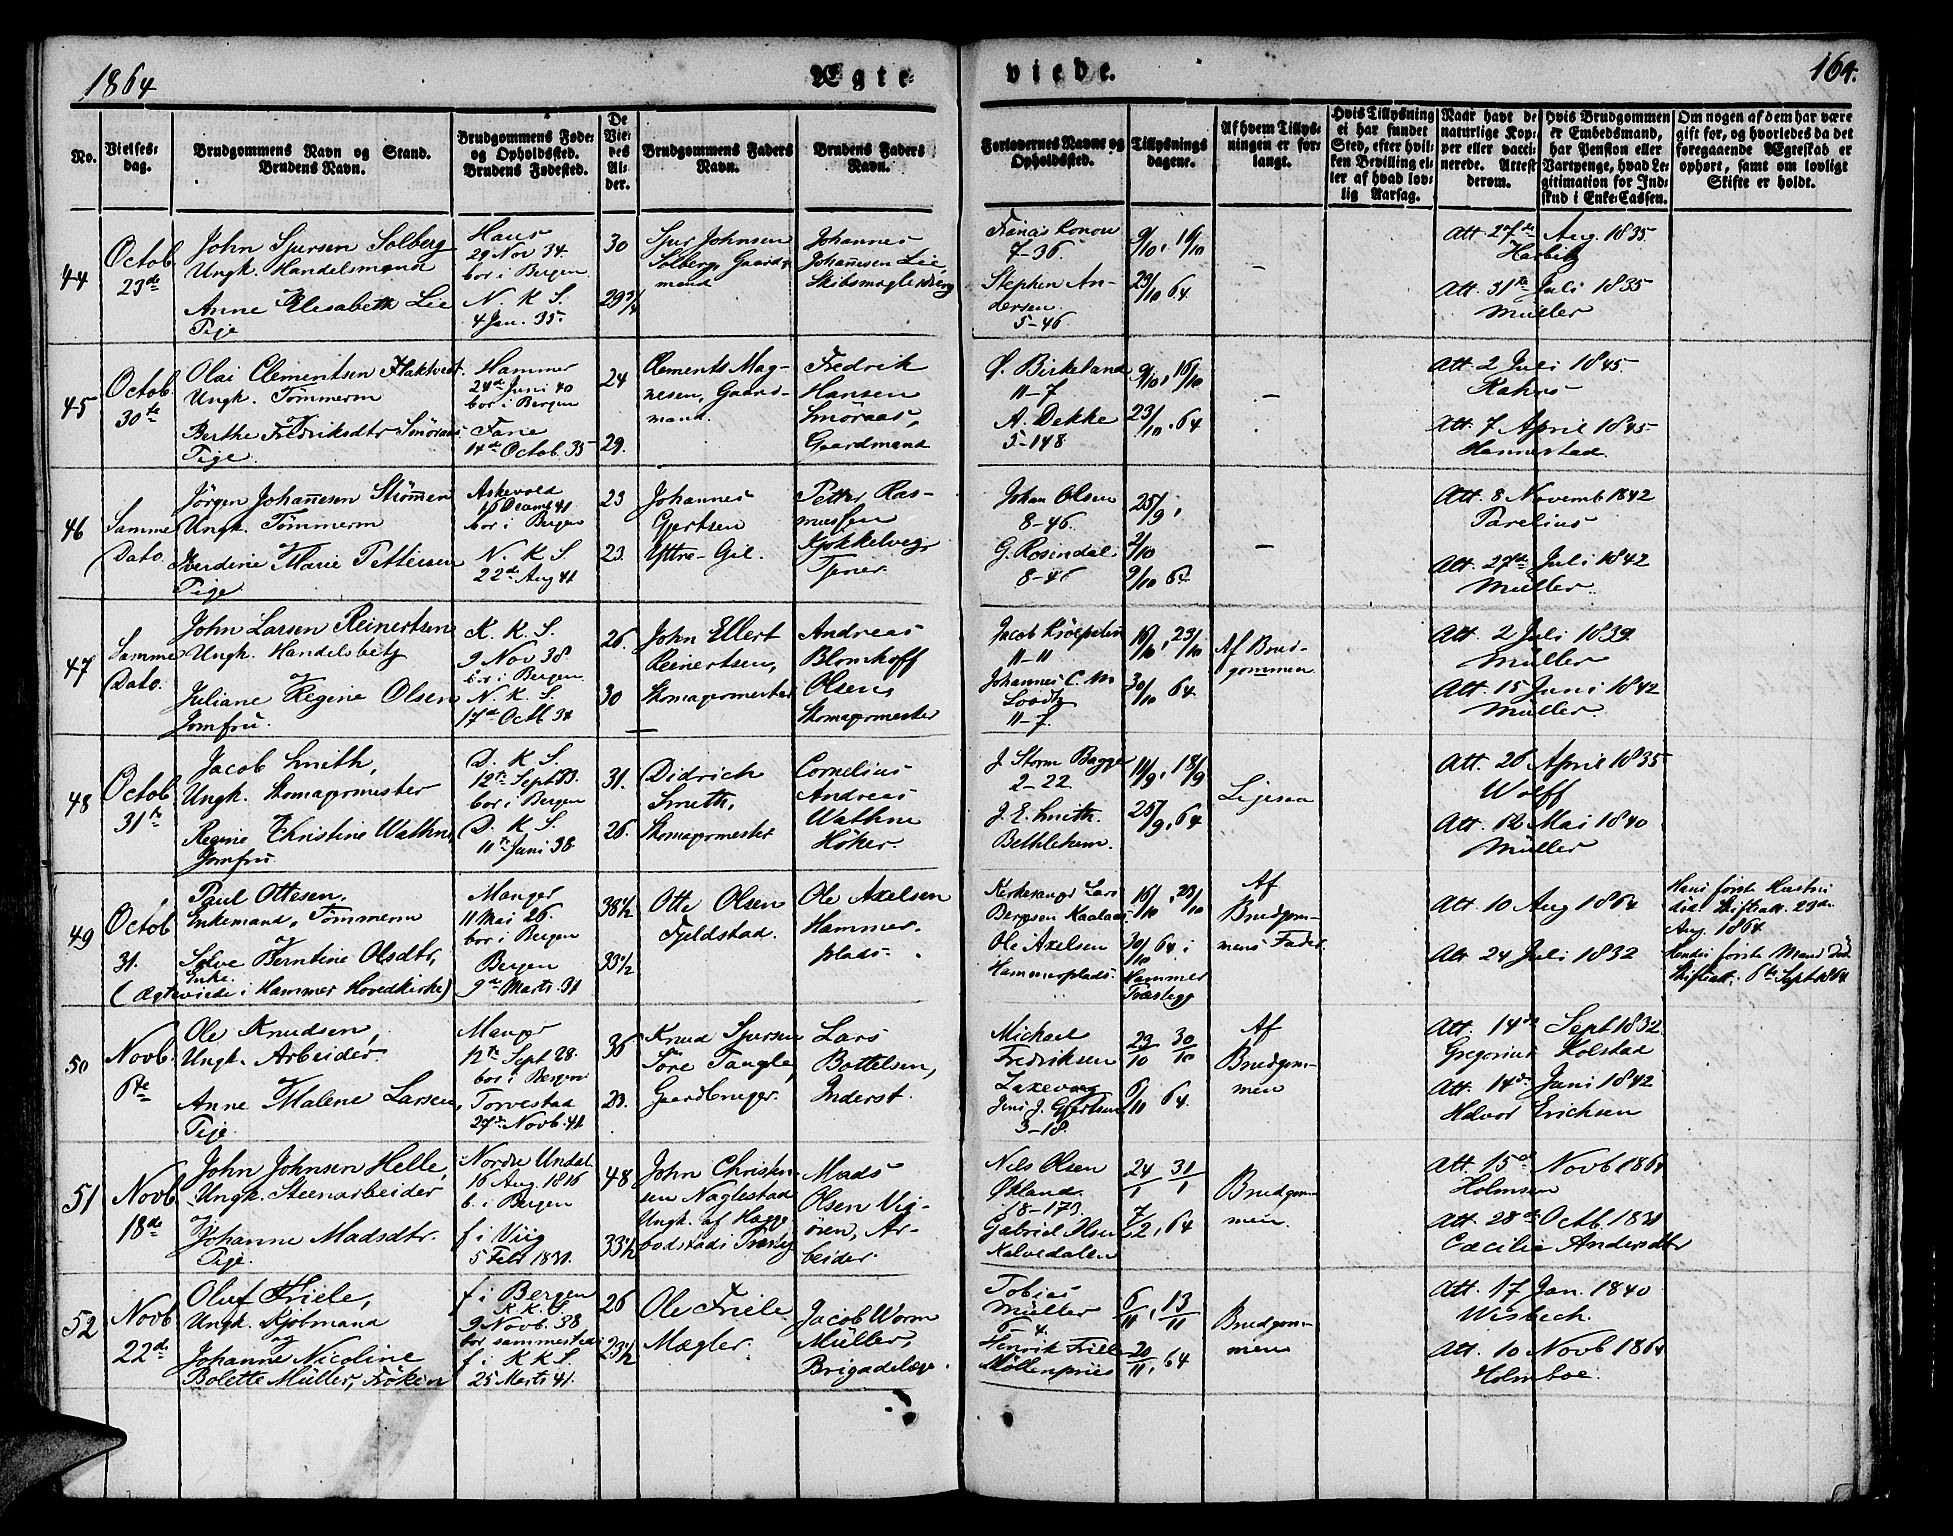 1864
Ægte-
viede.
164.
No.
Vielses-
dag.
Brudgommens Navn og Stand.
Brudens Navn.
Brudgommens Føde-
og Opholdssted.
Brudens Fødested.
De
Vie-
des
Al-
der.
Brudgommens Faders
Navn.
Brudens Faders
Navn.
Forlovernes Navne og
Opholdssted.
Tillysnings
dagene.
Af hvem Tillys-
ningen er for-
langt.
Hvis Tillysning
ei har fundet
Sted, efter hvil-
ken Bevilling el-
ler af hvad lov-
lig Aarsag.
Naar havt de
naturlige Kop-
per eller vacci-
nerede. Attest
derom.
Hvis Brudgommen
er Embedsmand,
har Pension eller
Vartpenge, hvad Le-
gitimation for Ind-
skud i Enke-Cassen.
Om nogen af dem har være
gift før, og hvorledes da det
foregaaende Ægteskab er
ophørt, samt om lovligt
Skifte er holdt.
44
Octob.
23de
John Sjursen Solberg
Ungk. Handelsmand
Anne Elisabeth Lie
Pije
Haus
29 Nov 34.
bor i Bergen
N. K. S.
4 Jan. 35.
30
29 3/4
Sjur Johnsen
Solberg, Gaard-
mand
Johannes
Johannesen Lie,
Skibsmæglerdreng
7-36.
Stephen An-
dersen
5-46.
9/10, 16/10
23/10 64.
-
Att. 27de Aug. 1835
Harbitz
Att. 31te Juli 1835
Müller
45
Octob.
30te
Olai Clementsen Flaktvedt.
Ungk. Tømmerm
Berthe Fredriksdtr Smøraas
Pige
Hammer
24de Juni 40
bor i Bergen
Fane
14de Octob. 35
24
29.
Clements Mag-
nesen, Gaard-
mand.
Fredrik
Hansen
Smøraas,
Gaardmand
O. Birkeland
11-7
A. Dekke
5-148
9/10, 16/10
23/10. 64
-
Att. 2 Juli 1845
Rahrs
Att. 7 April 1845
Hannestad
46
Samme
Dato
Jørgen Johannesen Strømmen
Ungk. Tømmerm
Berdine Marie Pettersen
Pige
Askevold
16 Decemb 41
bor i Bergen
N. K. S
22de Aug 41
23
23.
Johannes
Gjertsen
Yttre-Gil.
Petter Ras-
mussen
Tjener
Johan Olsen
8-46.
G. Rosendal
8-46
25/9,
2/10
9/10 64
-
Att. 8 Novemb 1842
Parelius
Att. 27de Juli 1842
Müller
47
Samme
Dato.
John Larsen Reinertsen
Ungk. Handelsbetj
Juliane Regine Olsen
Jomfru.
K. K. S.
9 Nov 38
bor i Bergen
N. K. S.
17de Octb 34
26.
30
John Ellert
Reinertsen,
Skomagermester
Andreas
Blomhoff
Olsen
Skomagermester
11-11
Johannes C. M.
Loodtz
11-7.
16/10, 23/10
30/10 64.
Af Brud-
gommen
Att. 2 Juli 1839
Müller
Att. 15 Juni 1842
Müller.
48
Octob.
31te
Jacob Smith,
Ungk. Skomagermester
Regine Christine Wathne,
Jomfru
D. K. S.
12te Sept 33.
bor i Bergen
D. K. S.
11te Juni 38.
31.
26.
Didrich
Smith,
Skomagermester
Cornelius
Andreas
Wathne
Høker.
J. Storm Bagge
2-22
J. E. Smith.
Bethlehem.
11/9, 18/9
25/9. 64
Ligesaa
Att. 20 April 1835
Wolff
Att. 12 Mai 1840
Müller
49
Octob
31.
Paul Ottesen,
Enkemand, Tømmerm
Solve Berntine Olsdtr,
Enke
(Ægteviede i Hammer Hovedkirke)
Manger
11 Mai 26.
bor i Bergen
Bergen
9de Marts 31
38 1/2
33 1/2
Otte Olsen
Fjeldstad.
Ole Axelsen
Hammer-
plads.
Kirkesanger Lars
Bergesen Kaalaas
Ole Axelsen
Hammersplads
16/10, 23/10
30/10 64 i
Hammer
Præstegj
Af
Brudgom-
mens Fader
Att. 10 Aug 1864
Att. 24 Juli 1832
Hans første Hustru
død. Skifteatt. 23de
Aug. 1864.
Hendes første Mand død
Skifteatt. 6te Sept 1864
50
Novb.
6te
Ole Knudsen,
Ungk. Arbeider
Anne Malene Larsen,
Pige
Manger
12te Sept 28.
bor i Bergen
Torvestad
27de Novb. 41
36
23.
Knud Sjursen
Tore Tangle,
Gaardbruger.
Lars
Bottelsen,
Inderst.
Michael
Fredriksen
Laxevaag
Jens J. Gjertsen
3-18.
23/10 30/10
6/11 64.
Af
Brudgom-
men
Att. 14de Sept 1832.
Gregorius Kolstad
Att. 14de Juni 1842
Halvor Erichsen
51
Novb
18de
John Johnsen Helle,
Ungk. Steenarbeider
Johanne Madsdtr.
Pige.
Nordre Undal
16 Aug. 1816
b. i Bergen
f i Viig
5 Febr 1831.
48
33 1/2
John Christen-
sen Naglestad
Ungk. af Hægge-
bodstads Præsteg
Mads
Olsen Vig-
ören, Ar-
beider.
Nils Olsen
Økland.
18-173.
Gabriel Olsen
Kalvedalen
24/1 31/1
7/2, 64
Brudgom-
men.
Att. 15de Novb 1864
Holmsen
Att. 28de Octb. 1831
Cæcilie Andersdtr
52
Novb
22de
Oluf Friele,
Ungk. Kjøbmand
og
Johanne Nicoline
Bolette Müller, Frøken
f i Bergen
K. K. S.
9 Novb. 38
bor sammesteds
f i K K S.
25 Marts 41.
26
23 1/2
Ole Friele
Mægler.
Jacob Worm
Müller,
Brigadelæge.
Tobias
Müller
6 4.
Henrik Friele
Møllenpriis
6/11, 13/11
20/11, 64
Brudgom-
men
Att. 17 Jan. 1840
Wisbech.
Att. 10 Novb 1864
Holmboe.